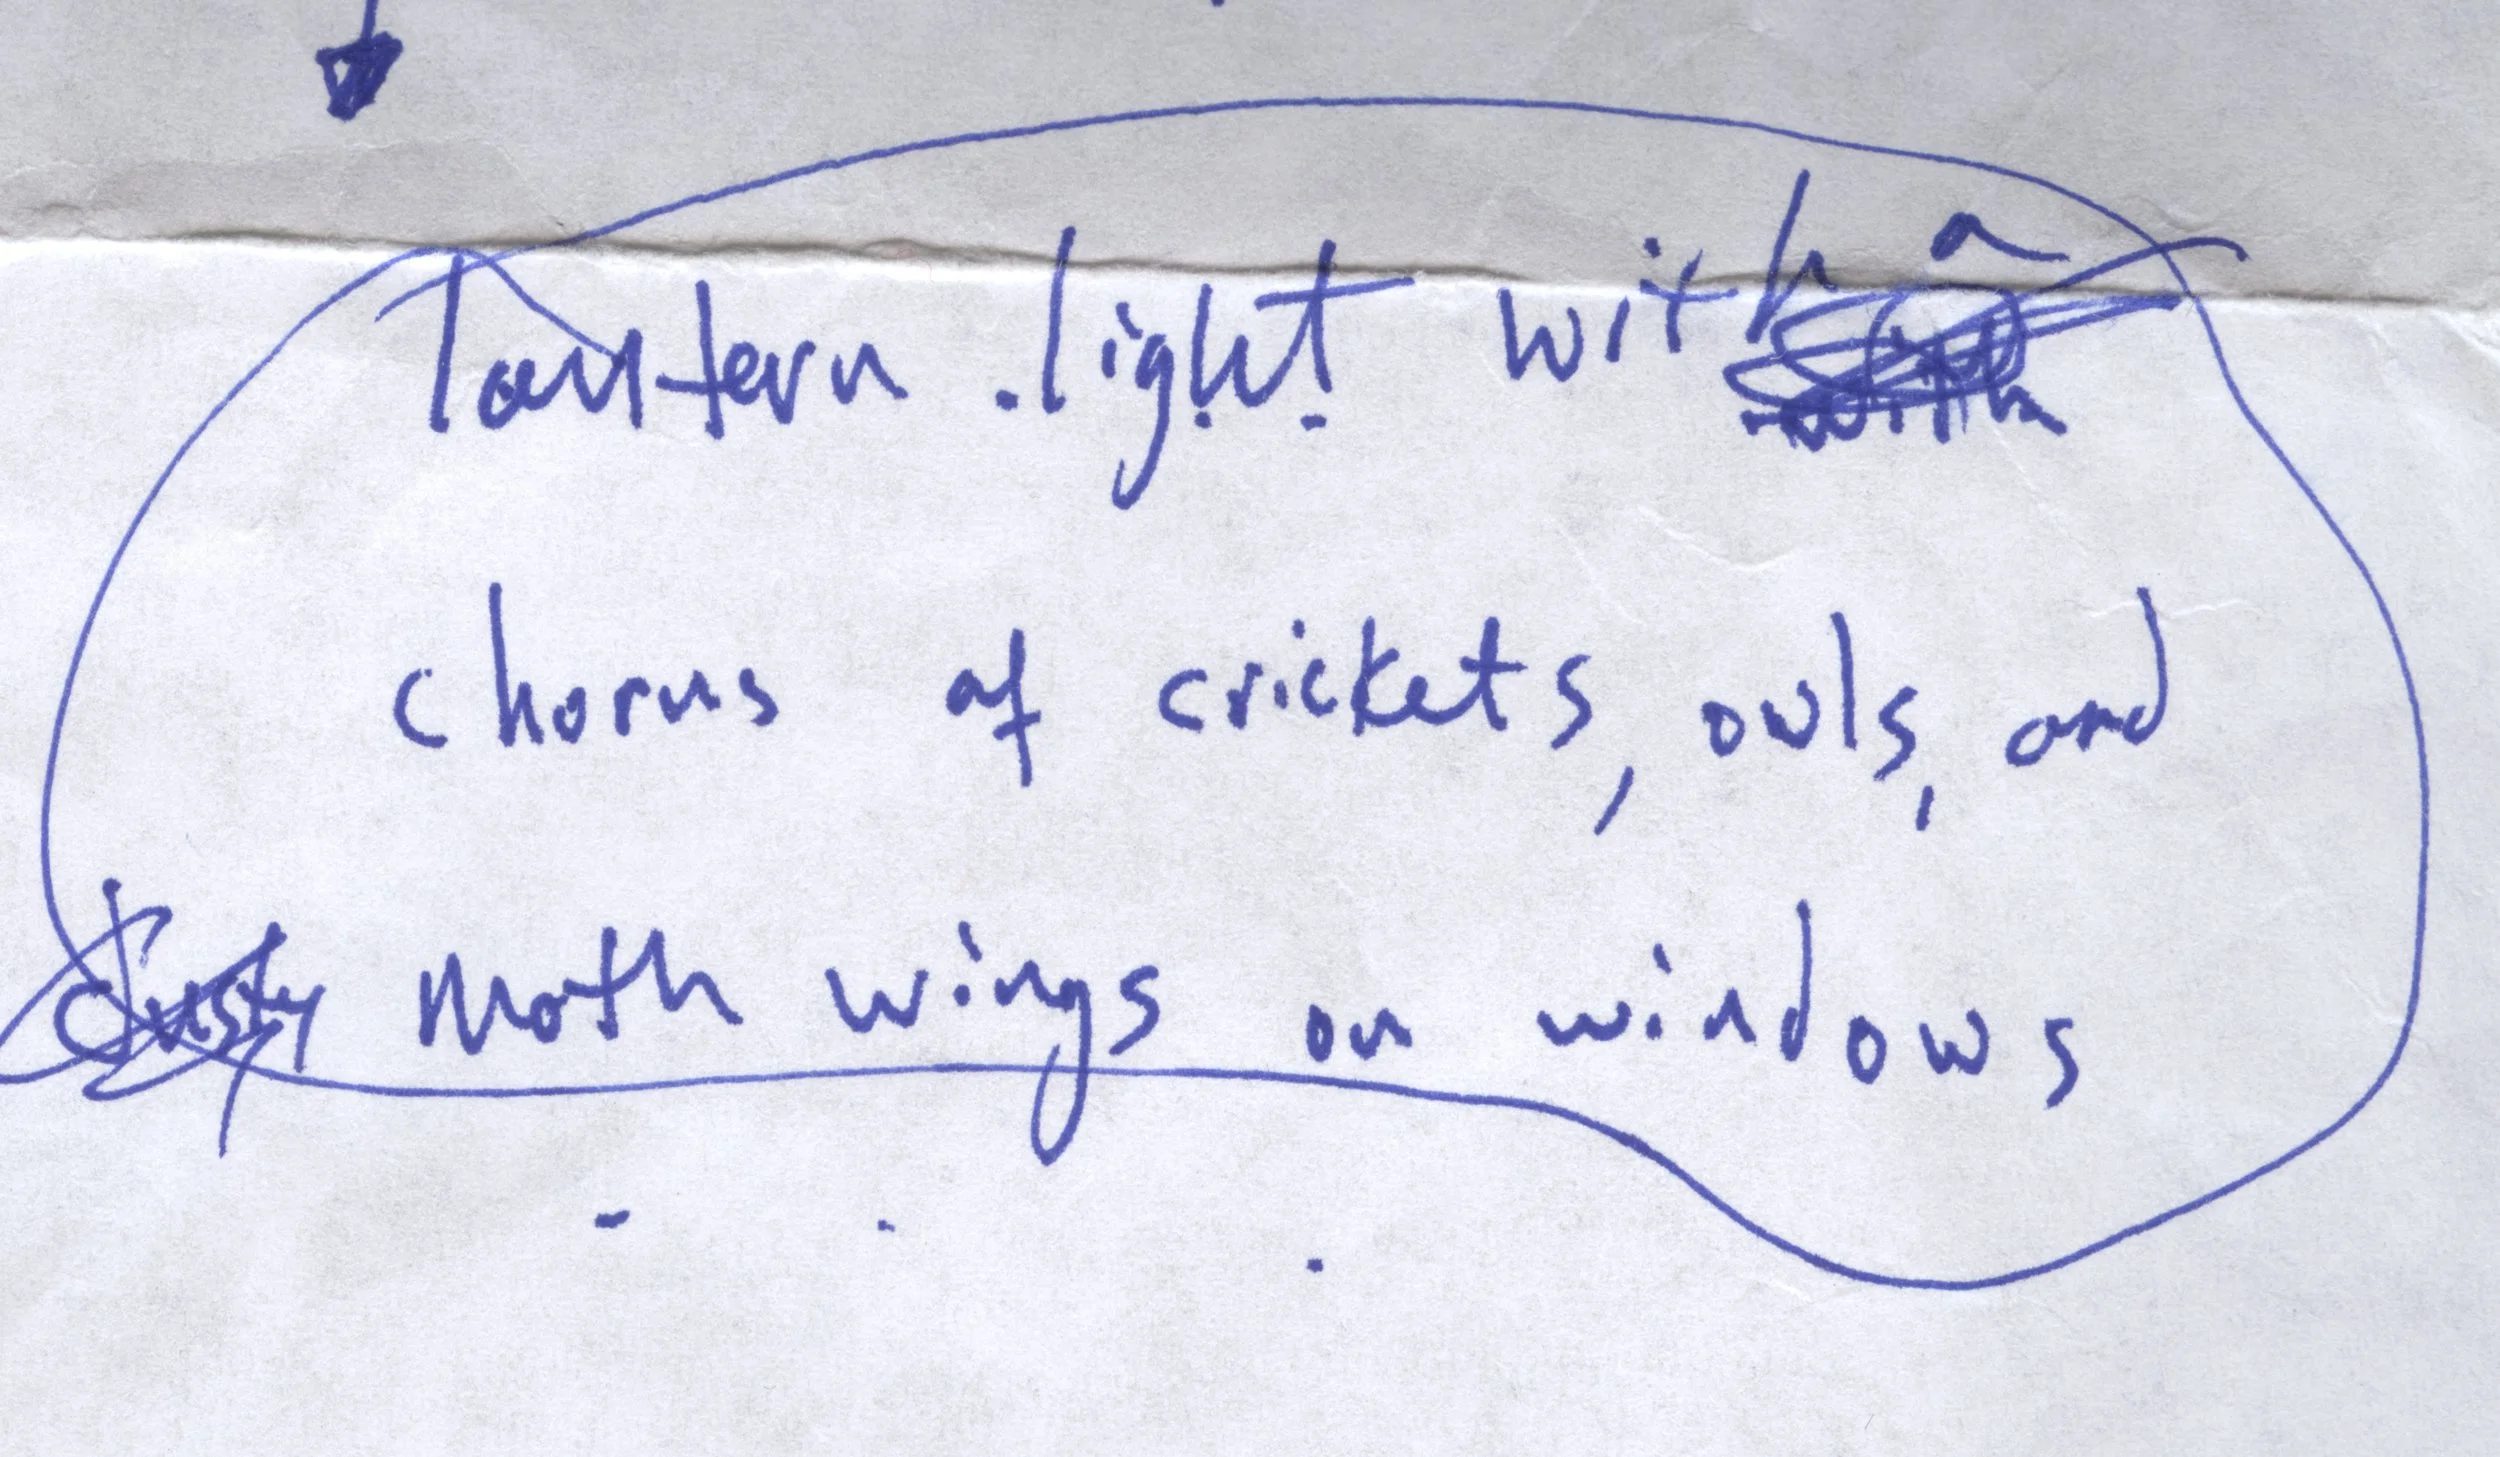 lantern light with a
chorus of crickets, owls, and
dusty moth wings on windows